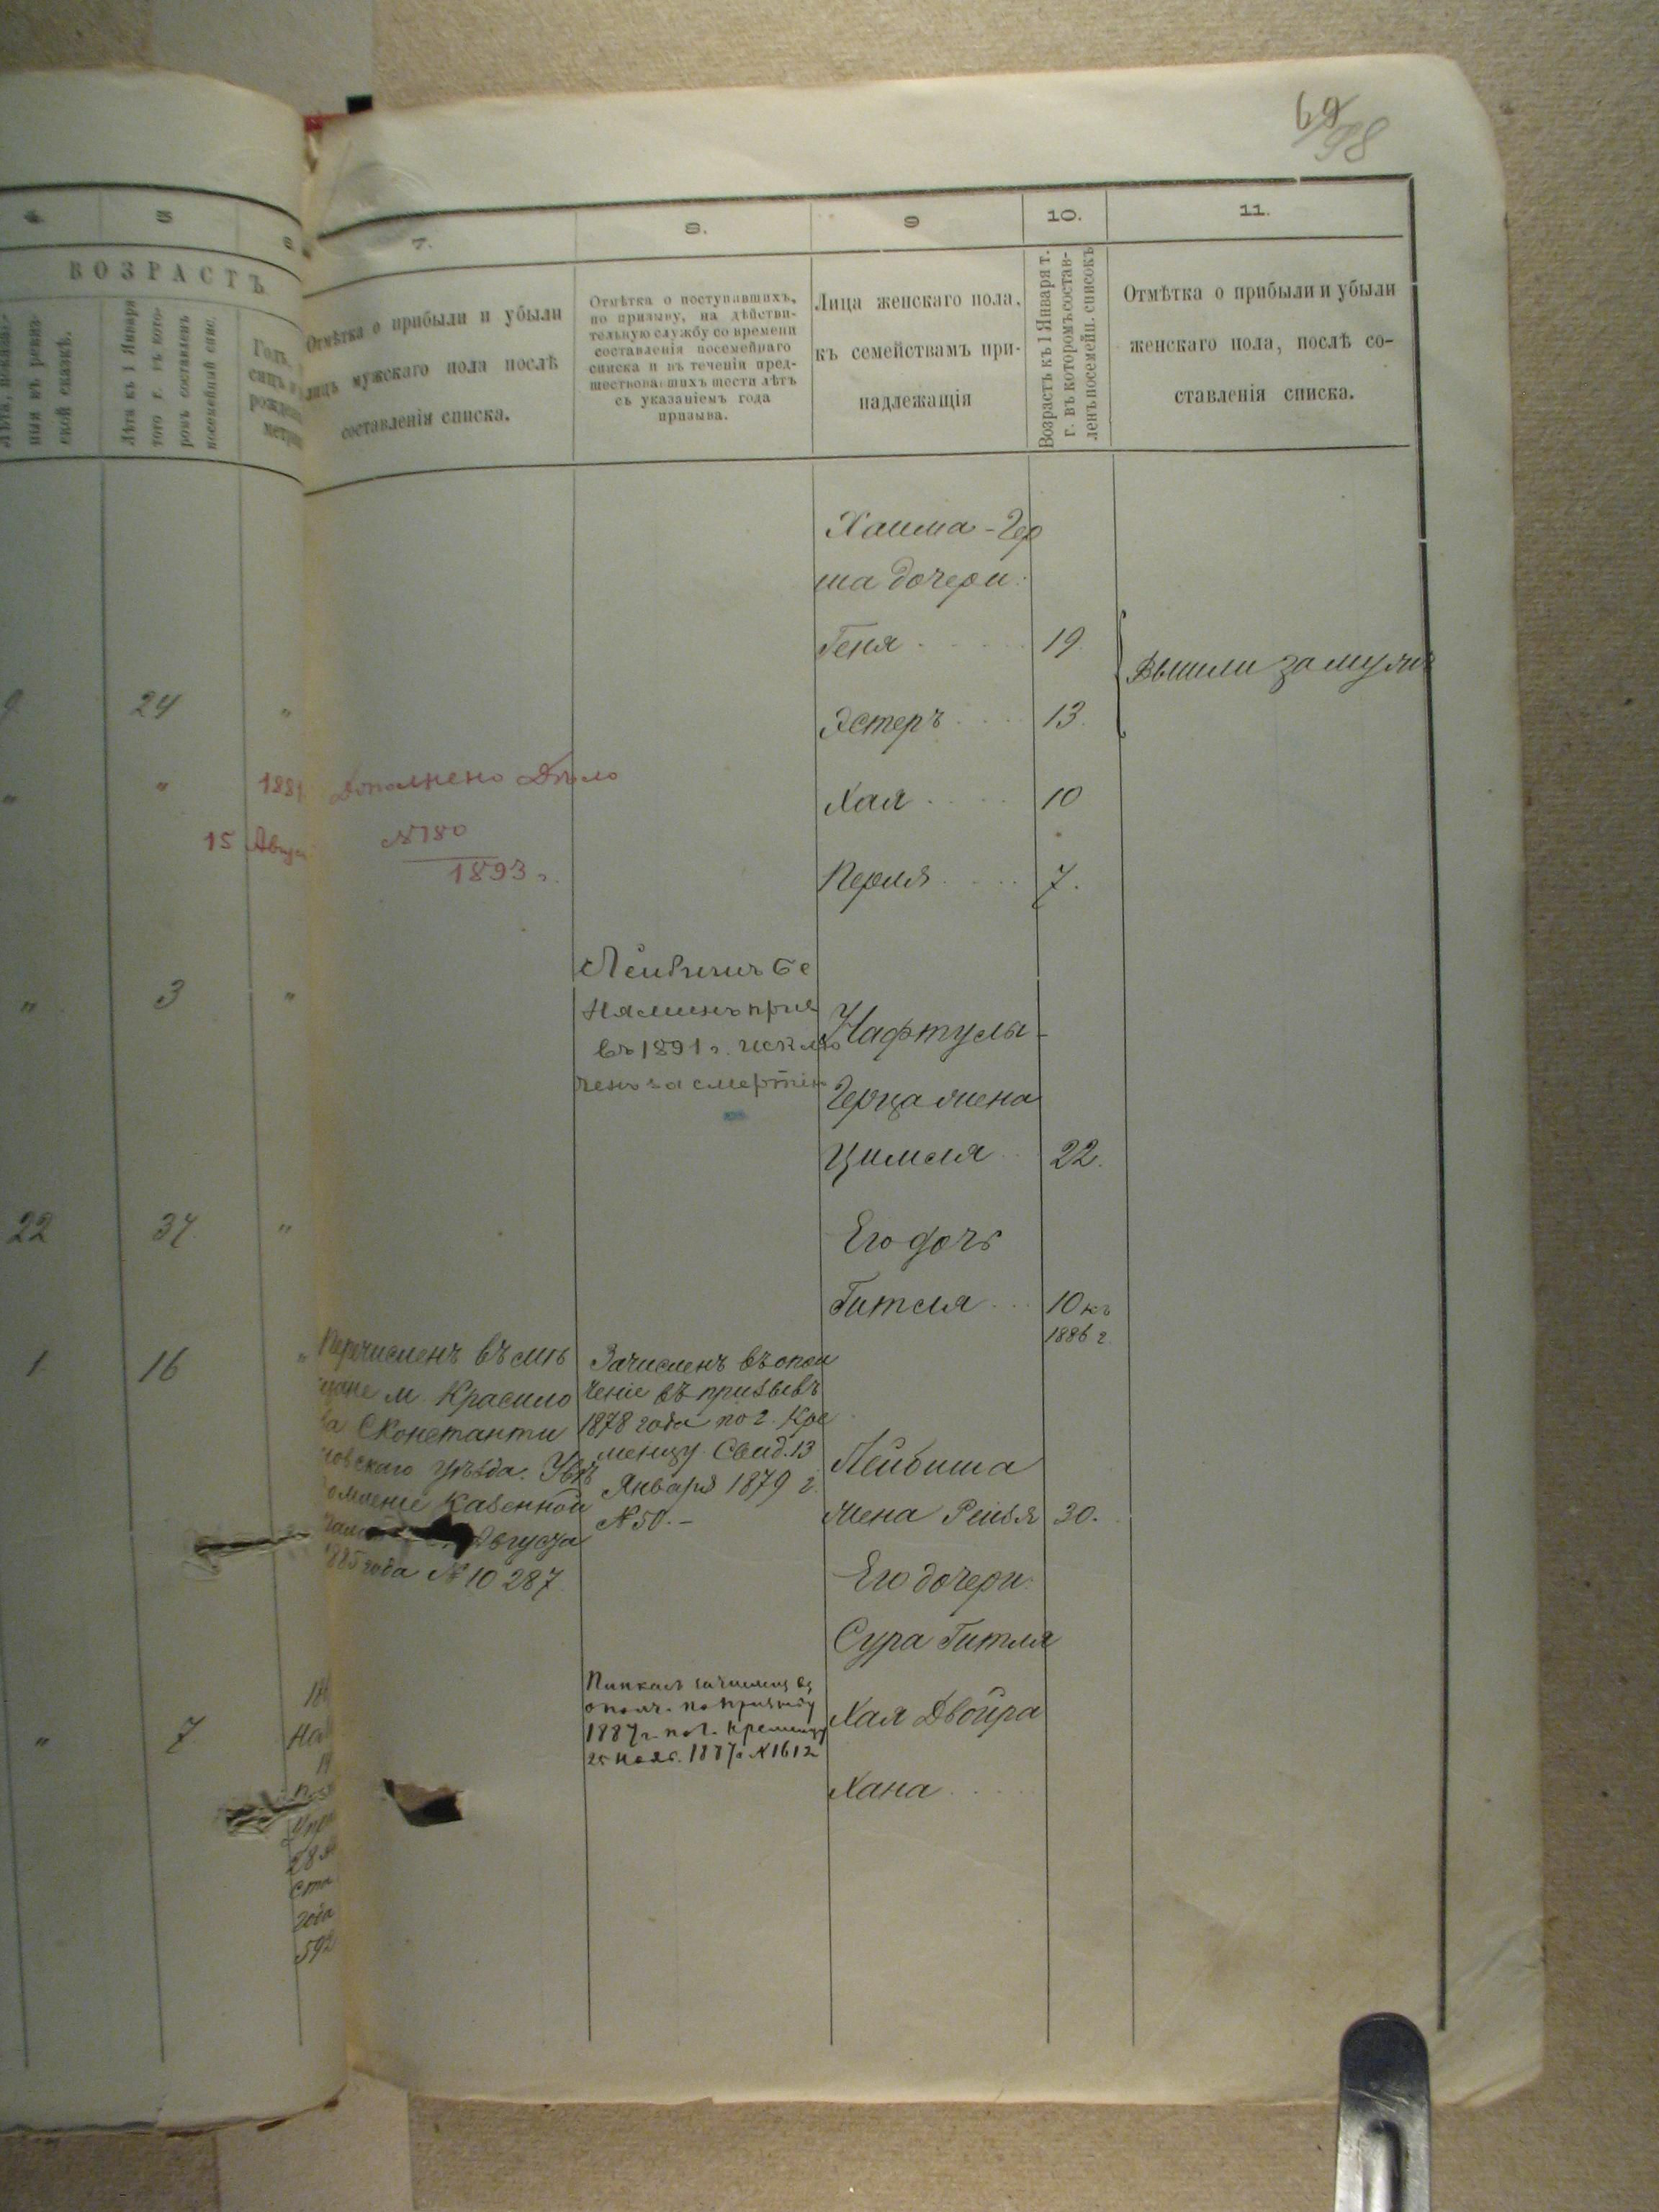 69
98
4.
5
6
7.
8.
9
10.
11.
ВОЗРАСТЪ
ныя въ ревиз-
ской сказкѣ.
Лѣта къ 1 Января
того г. въ кото-
ромъ составленъ
посемейный спис.
Годъ,
рожден
метри
Отмѣтка о прибыли и убыли
лицъ мужскаго пола послѣ
составленія списка.
Отмѣтка о поступавшихъ,
по призыву, на дѣйстви-
тельную службу со времени
составленія посемейнаго
списка и въ теченіи пред-
шествовавшихъ шести лѣтъ
съ указаніемъ года
призыва.
Лица женскаго пола,
къ семействамъ при-
надлежащія
Возрастъ къ 1 Января т.
г. въ которомъ состав-
ленъ посемейн. списокъ
Отмѣтка о прибыли и убыли
женскаго пола, послѣ со-
ставленія списка.
Хаима-Гер
ша дочери:
Геня 19
Вышли замужъ
24 "
Эстеръ 13.
" " 1881
Дополнено Дѣло
Хая 10
15 Авгус
№ 180
1893 г.
Перля 7.
" 3 "
Лейбишъ Бе
няминъ прин
въ 1891 г. исклю
ченъ за смертію
Нафтулы-
Герца жена
Цимля 22.
22 37 "
Его дочь
Гитля 10 къ
1886 г.
1 16 "
Перечисленъ въ мѣ
щане м. Красило
ва СКонстанти
новскаго уѣзда. Увѣ
домленіе Казенной
Августа
1885 года № 10287.
Зачисленъ въ опол
ченіе въ призывъ
1878 года по г. Кре
менцу Свид. 13
Января 1879 г.
№ 50.-
Лейбиша
жена Рейзя 30.
Его дочери:
Сура Гитля
Пинкасъ зачисленъ въ
ополч. по призыву
1887 г. по г. Кременцу
25 нояб. 1887 г. № 1612
Хая Двойра
" 7
Хана
года
592